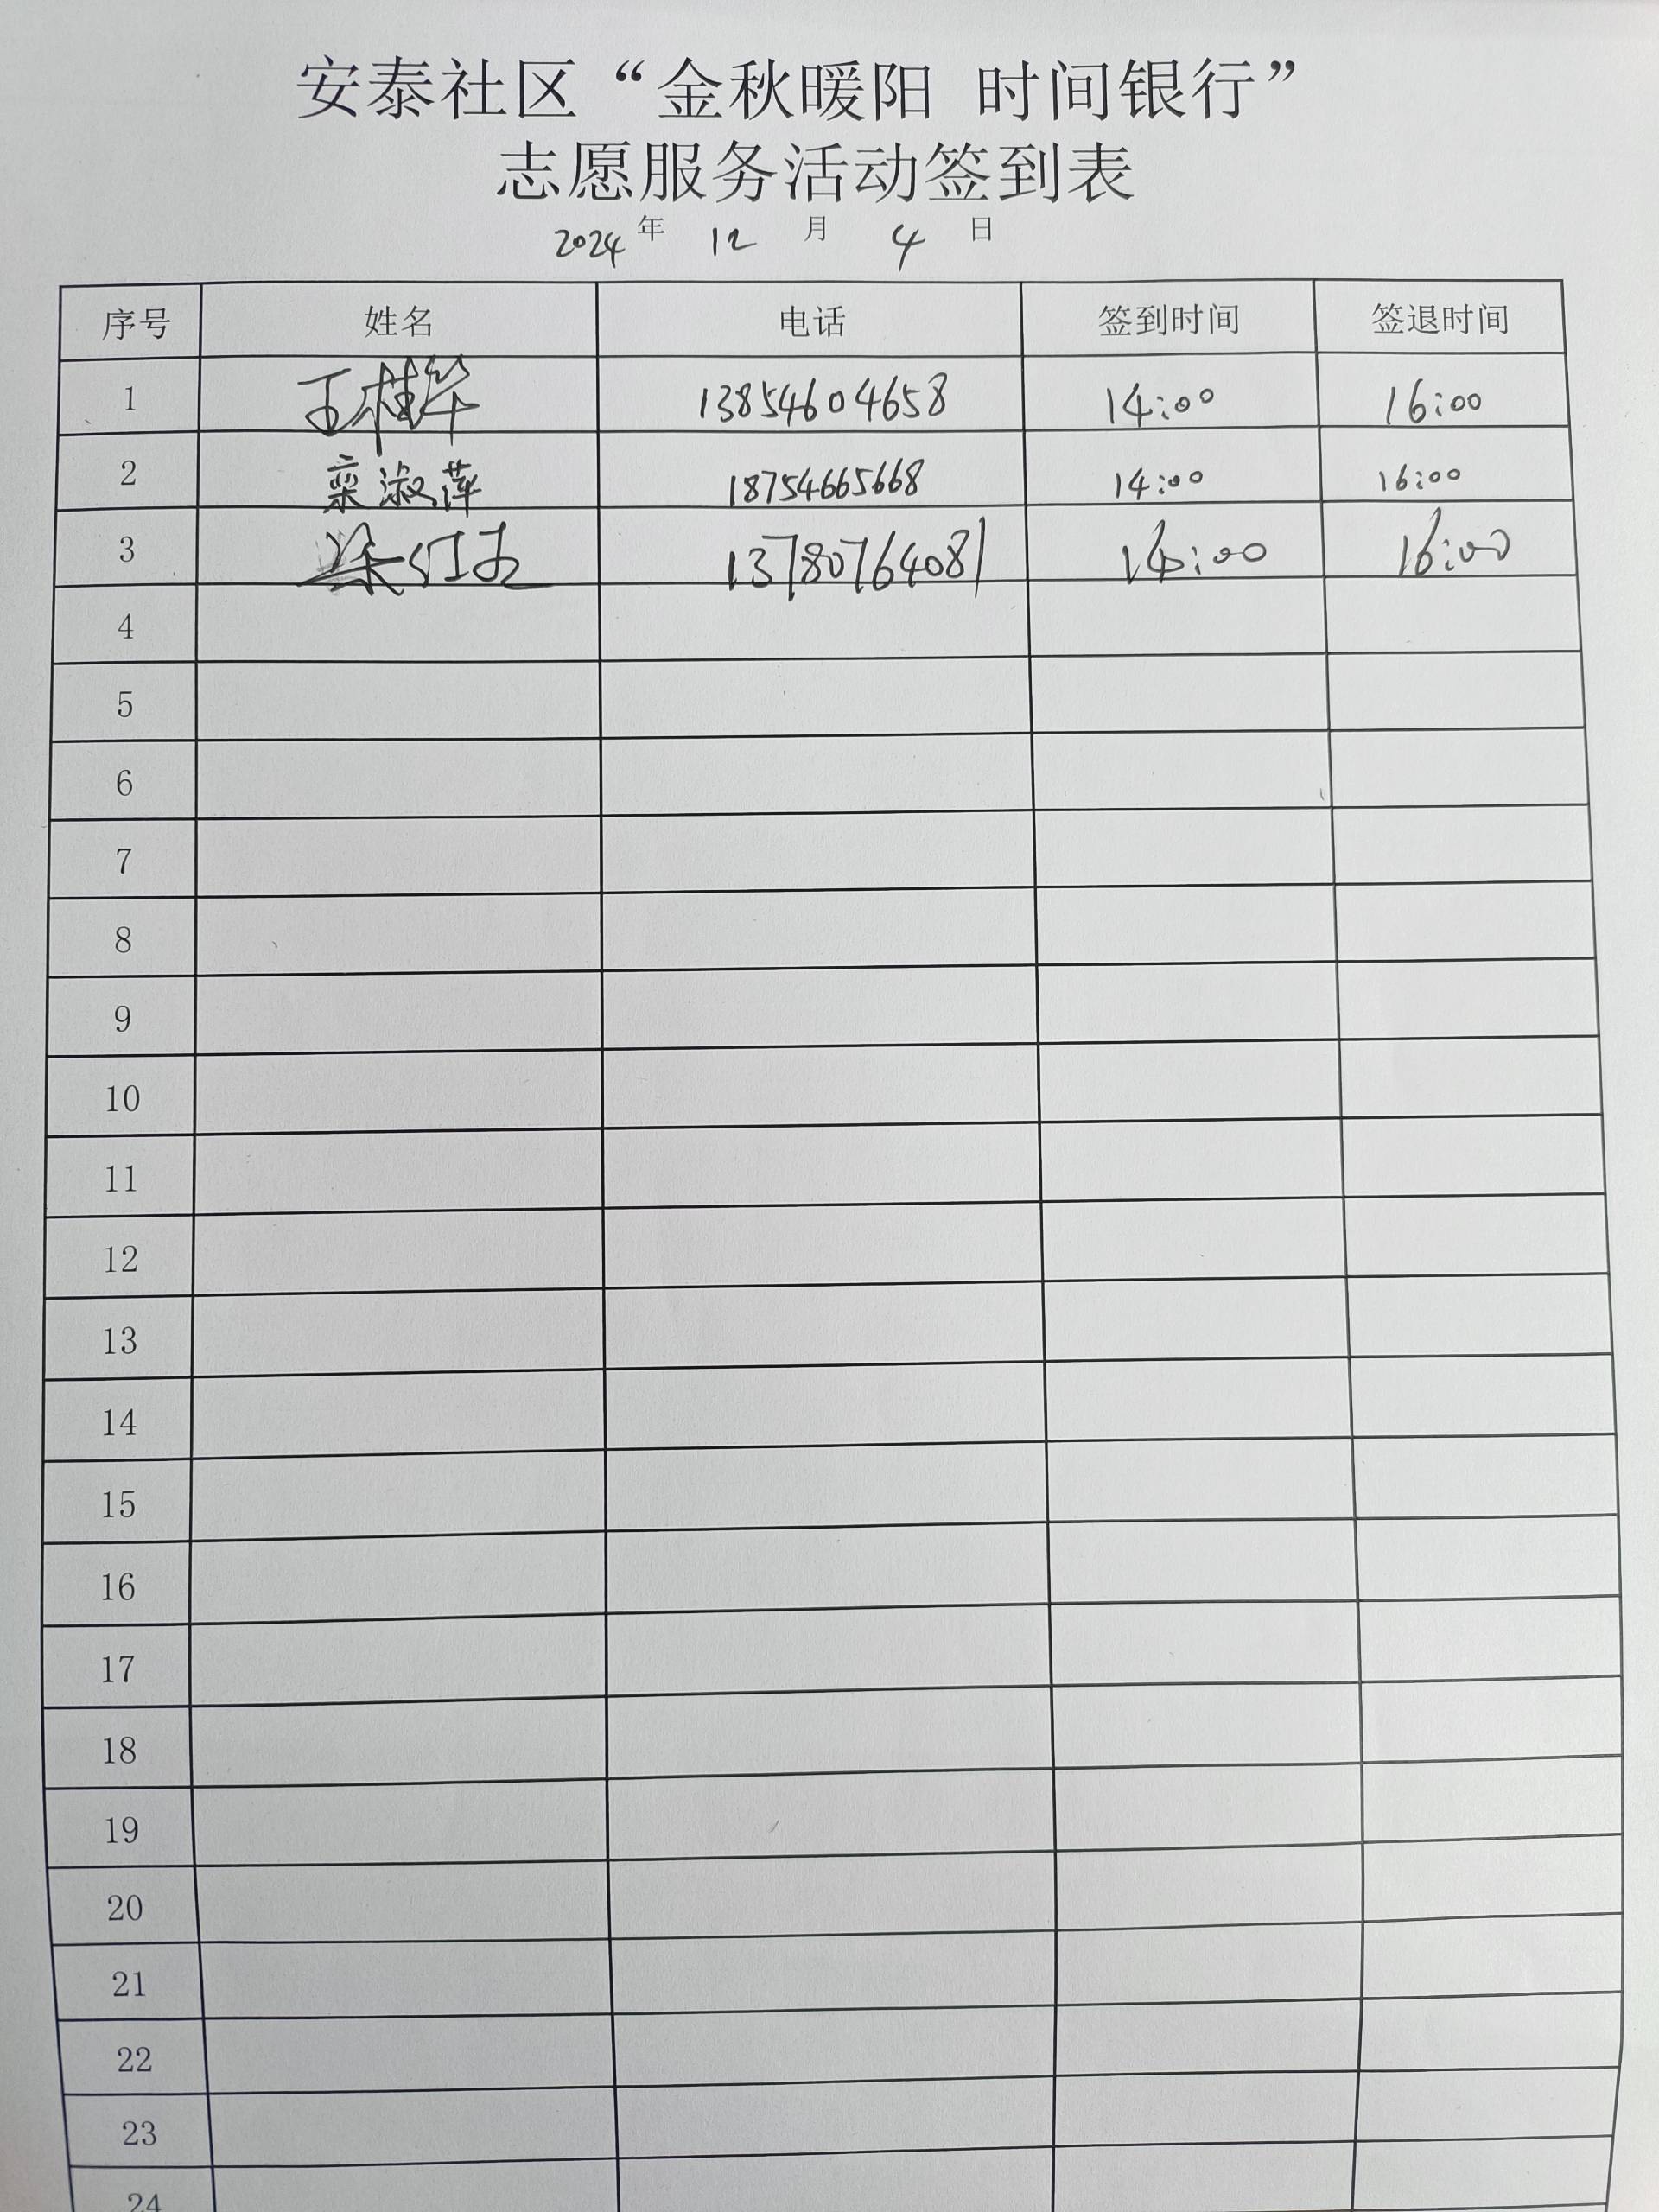 安泰社区“金秋暖阳 时间银行”
志愿服务活动签到表
2024年 12月 4日
序号 姓名 电话 签到时间 签退时间
1 王桂华 13854604658 14:00 16:00
2 栾淑萍 18754665668 14:00 16:00
3 13780764081 14:00 16:00
4
5
6
7
8
9
10
11
12
13
14
15
16
17
18
19
20
21
22
23
24